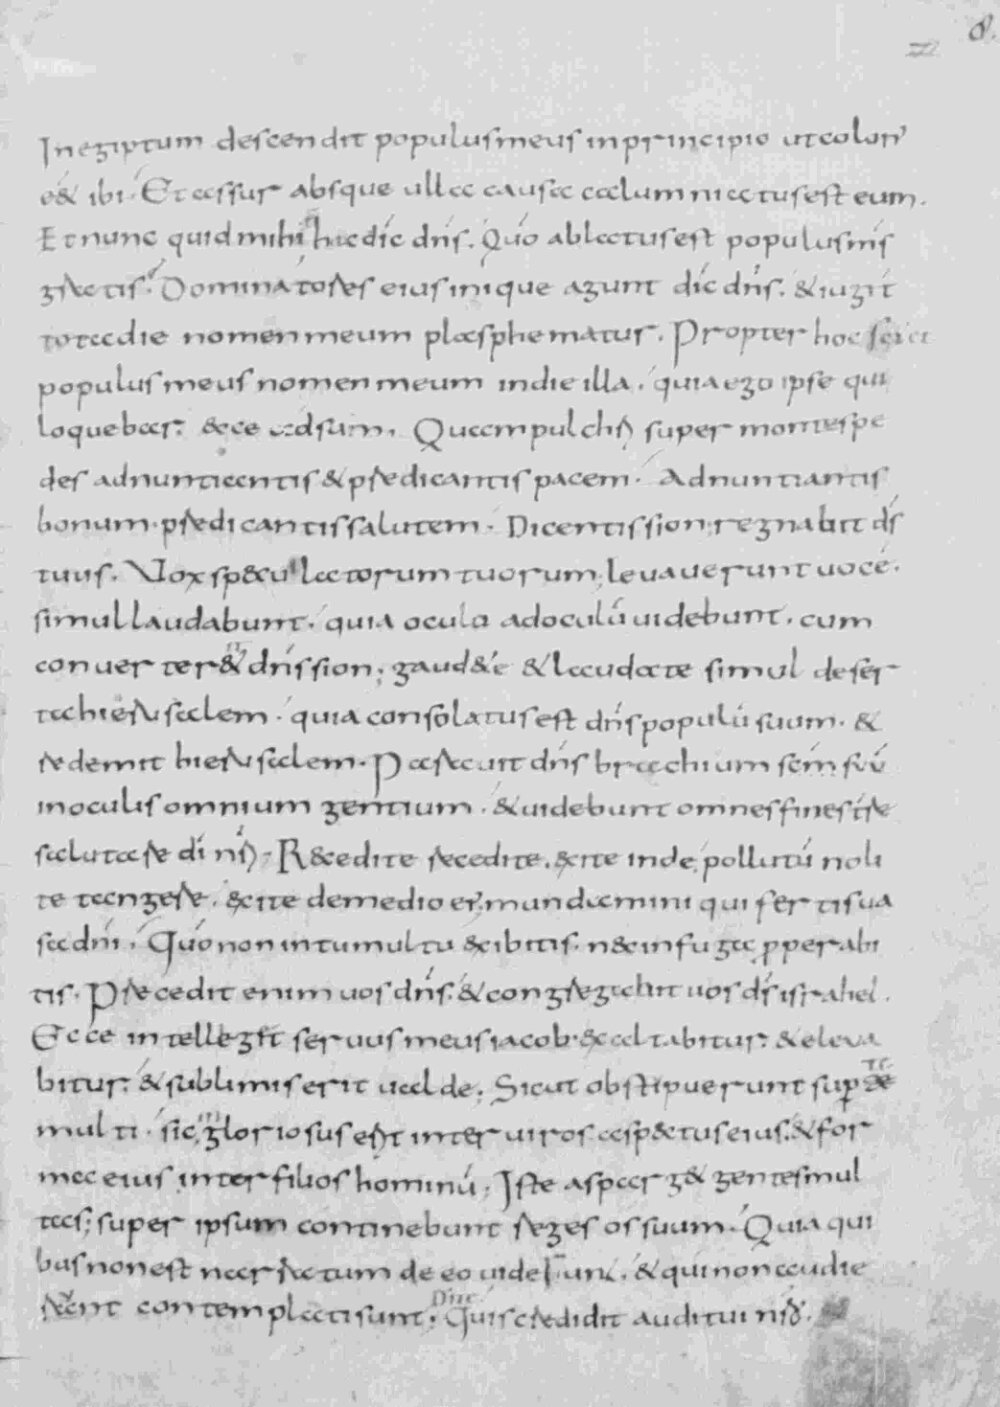 8.
In egiptum descendit populus meus in principio ut colon
e& ibi. Et assur absque ulla causa calumniatus est eum.
Et nunc quid mihi hic dic dns. Quo ablatus est populus ms
gratis. Dominatores eius inique agunt dic dns. & iugit
tota die nomen meum plasphematur. Propter hoc sciet
populus meus nomen meum in die illa. quia ego ipse qui
loquebar. Ecce adsum. Quam pulchri super montes pe
des adnuntiantis & predicantis pacem. Adnuntiantis
bonum. predicantis salutem. Dicentis sion; regnabit ds
tuus. Vox speculatorum tuorum; levaverunt voce.
simul laudabunt. quia oculo ad oculu videbunt. cum
converter& dns sion; gaud&e & laudate simul deser
ta hierusalem. quia consolatus est dns populu suum. &
redemit hierusalem. Paravit dns brachium scm suu
in oculis omnium gentium. & videbunt omnes fines tre
salutare di nri. Recedite recedite. exite inde; pollutu noli
te tangere. exite de medio ei; mundamini qui fertis va
sa dni. Quo non in tumultu exibitis. nec in fuga pperabi
tis. Precedit enim vos dns. & congregabit vos ds israhel.
Ecce intelleget servus meus iacob. exaltabitur. & eleva
bitur. & sublimis erit valde; Sicut obstipuerunt sup te
multi. sic inglorius erit inter viros aspectus eius. & for
ma eius inter filios hominu; Iste asparg& gentes mul
tas; super ipsum continebunt reges os suum. Quia qui
bus non est narratum de eo viderunt. & qui non audie
rant contemplati sunt. Dne Quis credidit auditui nro.